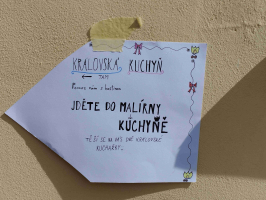 KRALOVSKÁ KUCHYŇ
← TAM
Pomozte nám s hostinou
JDĚTE DO MALÍRNY
+
KUCHYNĚ
TĚŠÍ SE NA VÁS DVĚ KRÁLOVSKÉ
KUCHAŘKY.